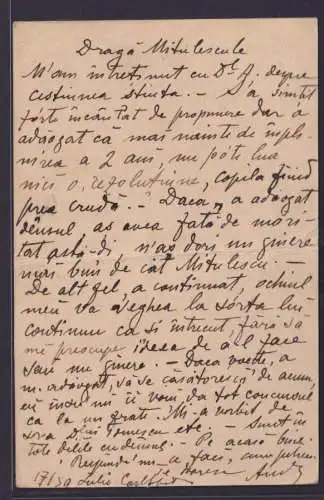 Dragă Mitulescule
M'am întreținut cu Dl. A. despre
cestiunea știuta. — S'a simțit
fórte incântat de propunere dar a
adăogat că mai nainte de împli-
nirea a 2 ani, nu póte lua
nici o rezolutiune, copila fiind
prea crudă. — Daca, a adăogat
dênsul, aș avea fată de mări-
tat astă-di, n'aș dori un ginere
mai bun de cât Mitulescu. —
De alt-fel a continuat, ochiul
meu va veghea la sórta lui
continuu ca și întrecut, fără să
mĕ preocupe ideea de a'l face
sau nu ginere. — Daca voește, a
m. adăogat, să se căsătorescă de acum,
eŭ însu-mi îi voiŭ da tot concursul
ca la un frate. Mi-a vorbit de
sora D-lui Ionescu etc. — Sunt în
tóte dilele cu dênsul. — Pe acasă bine.
Răspunde'mi a face
17/30 Iulie Carlsbad